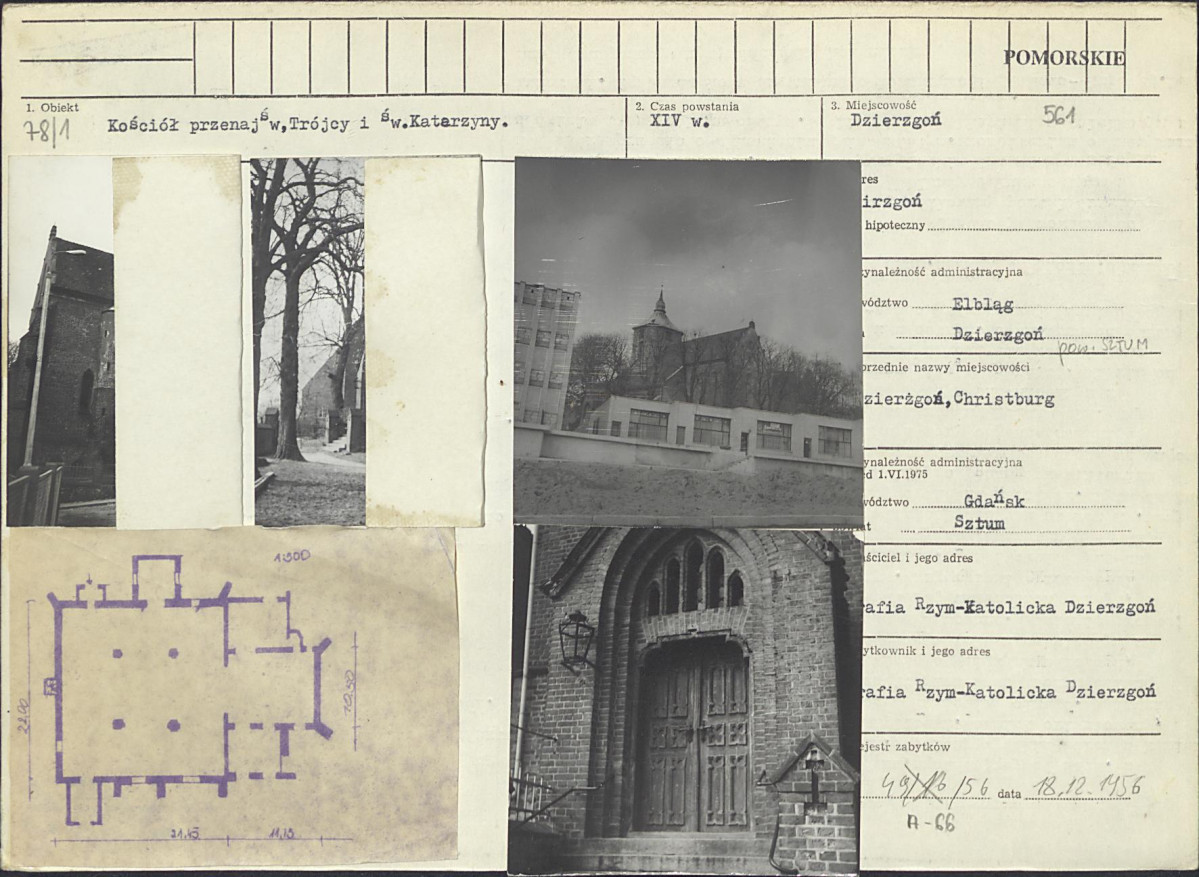 POMORSKIE
1. Obiekt
78/1
Kościół przenajśw,Trójcy i św.Katarzyny.
2. Czas powstania
XIV w.
3. Miejscowość
Dzierzgoń
561
res
irzgoń
hipoteczny
ynależność administracyjna
wództwo Elbląg
Dzierzgoń
pow. SZTUM
przednie nazwy miejscowości
zierżgoń,Christburg
ynależność administracyjna
ed 1.VI.1975
wództwo Gdańsk
Sztum
ściciel i jego adres
rafia Rzym-Katolicka Dzierzgoń
ytkownik i jego adres
rafia Rzym-Katolicka Dzierzgoń
ejestr zabytków
/56 data 18.12.1956
A-66
1:300
22.00
10.50
21,45
11,13